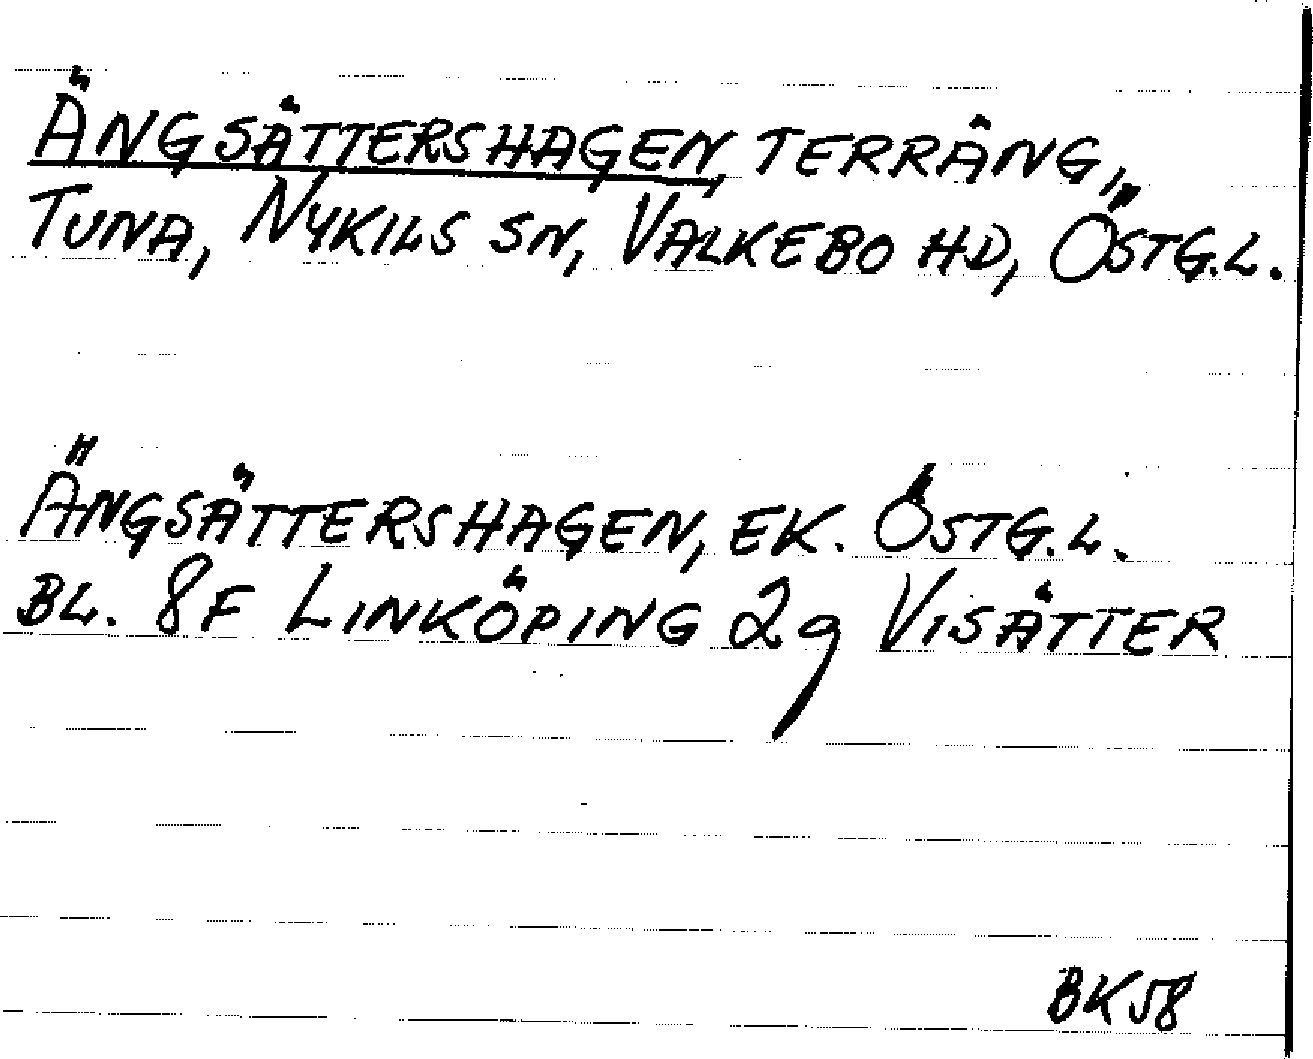 ÄNGSÄTTERSHAGEN, TERRÄNG,
TUNA, NYKILS SN, VALKEBO HD, ÖSTG.L.
ÄNGSÄTTERSHAGEN, EK. ÖSTG.L.
BL. 8F LINKÖPING 2g VISÄTTER
BK58